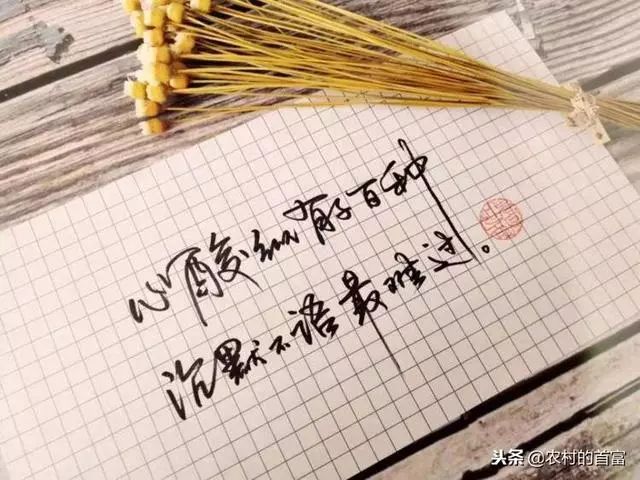 心酸纵有百种
沉默不语最难过。
头条 @农村的首富